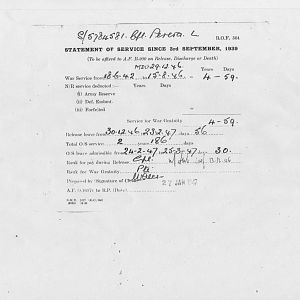 S/5784581. Cpl. Perera. L
R.O.F. 364
STATEMENT OF SERVICE SINCE 3rd SEPTEMBER, 1939
(To be affixed to A.F. B-200 on Release, Discharge or Death)
29.12.46 Years Days
War Service from 18.6.42 to 15.8.46 - 4 - 59.
N/R service deducted:— Years Days
(i) Army Reserve
(ii) Def. Embnt.
(iii) Forfeited
Service for War Gratuity 4 - 59.
Release leave from 30.12.46. 23.2.47 days 56
Total O/S service 2 years 186 days
O/S leave admissible from 24-2-47. 25-3-47 days 30.
Rank for pay during Release Cpl.
Rank for War Gratuity
Prepared by (Signature of Clerk) 27 JAN 1947